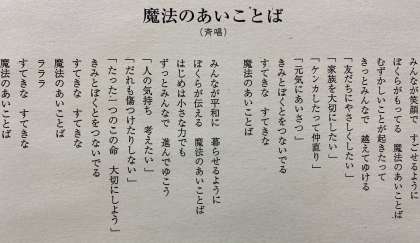 魔法のあいことば
(斉唱)
みんなが笑顔で すごせるように
ぼくらがもってる 魔法のあいことば
むずかしいことが起きたって
きっとみんなで 越えてゆける
「友だちにやさしくしたい」
「家族を大切にしたい」
「ケンカしたって仲直り」
「元気にあいさつ」
きみとぼくとをつないでる
すてきな すてきな
魔法のあいことば
みんなが平和に 暮らせるように
ぼくらが伝える 魔法のあいことば
はじめは小さな力でも
ずっとみんなで 進んでゆこう
「人の気持ち 考えたい」
「だれも傷つけたりしない」
「たった一つのこの命 大切にしよう」
きみとぼくとをつないでる
すてきな すてきな
魔法のあいことば
ラララ
すてきな すてきな
魔法のあいことば